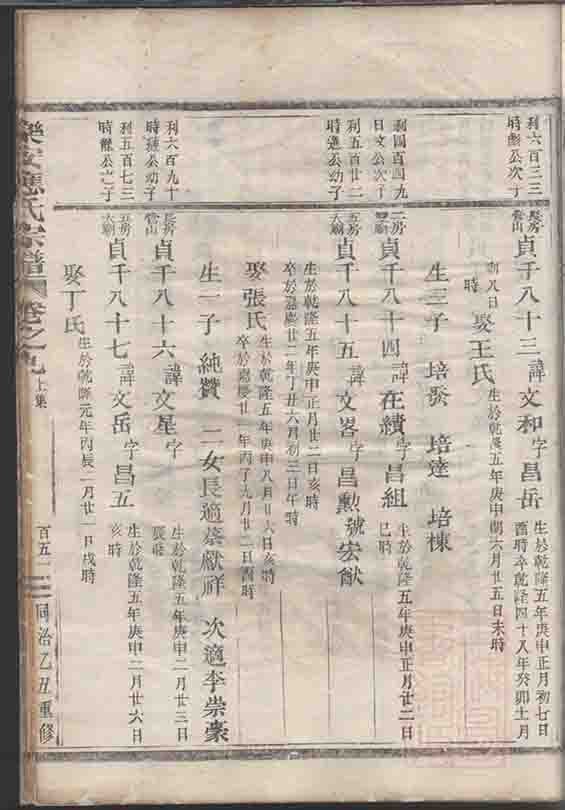 利六百三三
時𤋮公次子
長房
當山
貞千八十三 諱文和 字昌岳
生於乾隆五年庚申正月初七日
酉時卒乾隆四十八年癸卯十一月
初八日
時
娶王氏
生於乾隆五年庚申閏六月廿五日未時
生三子 培發 培達 培棟
利四百四九
日文公次子
二房
貞千八十四 諱在績 字昌組
生於乾隆五年庚申正月廿二日
巳時
利五百廿二
時進公幼子
五房
大廟
貞千八十五 諱文畧 字昌勲 號宏猷
生於乾隆五年庚申正月廿二日亥時
卒於嘉慶廿二年丁丑六月初三日午時
娶張氏
生於乾隆五年庚申八月廿六日亥時
卒於嘉慶廿一年丙子九月廿二日酉時
生一子 純贊 二女長適蔡獻祥 次適李崇豪
利六百九十
時 公幼子
長房
當山
貞千八十六 諱文星 字
生於乾隆五年庚申二月廿三日
利五百七三
時 公 子
五房
大廟
貞千八十七 諱文岳 字昌五
生於乾隆五年庚申二月廿六日
亥時
娶丁氏
生於乾隆元年丙辰二月廿一日戌時
樂安 氏宗譜 卷之九 上集
百五二
同治乙丑重修